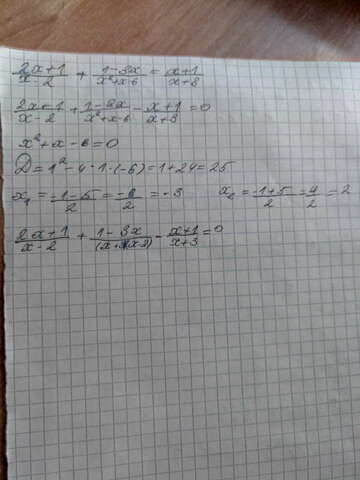 (2x+1)/(x-2) + (1-3x)/(x²+x-6) = (x+1)/(x+3)
(2x+1)/(x-2) + (1-3x)/(x²+x-6) - (x+1)/(x+3) = 0
x²+x-6=0
D=1²-4·1·(-6)=1+24=25
x₁ = (-1-5)/2 = -6/2 = -3 x₂ = (-1+5)/2 = 4/2 = 2
(2x+1)/(x-2) + (1-3x)/ - (x+1)/(x+3) = 0